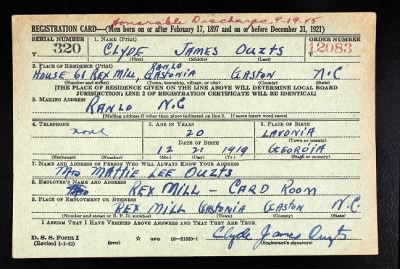 Honorable Discharge, 9-19-45
REGISTRATION CARD—(Men born on or after February 17, 1897 and on or before December 31, 1921)
SERIAL NUMBER 1. NAME (Print) ORDER NUMBER
T 320 CLYDE JAMES OUZTS 12083
(First) (Middle) (Last)
2. PLACE OF RESIDENCE (Print) RANLO
HOUSE 61 REX MILL, GASTONIA GASTON N.C
(Number and street) (Town, township, village, or city) (County) (State)
[THE PLACE OF RESIDENCE GIVEN ON THE LINE ABOVE WILL DETERMINE LOCAL BOARD
JURISDICTION; LINE 2 OF REGISTRATION CERTIFICATE WILL BE IDENTICAL]
3. MAILING ADDRESS
RANLO N.C
[Mailing address if other than place indicated on line 2. If same insert word same]
4. TELEPHONE 5. AGE IN YEARS 6. PLACE OF BIRTH
none 20 LAVONIA
DATE OF BIRTH (Town or county)
12 21 1919 GEORGIA
(Exchange) (Number) (Mo.) (Day) (Yr.) (State or country)
7. NAME AND ADDRESS OF PERSON WHO WILL ALWAYS KNOW YOUR ADDRESS
MRS MATTIE LEE OUZTS
8. EMPLOYER'S NAME AND ADDRESS
REX MILL - CARD ROOM
9. PLACE OF EMPLOYMENT OR BUSINESS
REX MILL GASTONIA GASTON N.C
(Number and street or R. F. D. number) (Town) (County) (State)
I AFFIRM THAT I HAVE VERIFIED ABOVE ANSWERS AND THAT THEY ARE TRUE.
D. S. S. Form 1
(Revised 1-1-42) (over) GPO 16—21630-1 Clyde James Ouzts
(Registrant's signature)